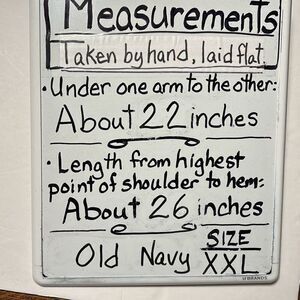 Measurements
Taken by hand, laid flat.
• Under one arm to the other:
About 22 inches
• Length from highest
point of shoulder to hem:
About 26 inches
Old Navy SIZE
XXL
U BRANDS